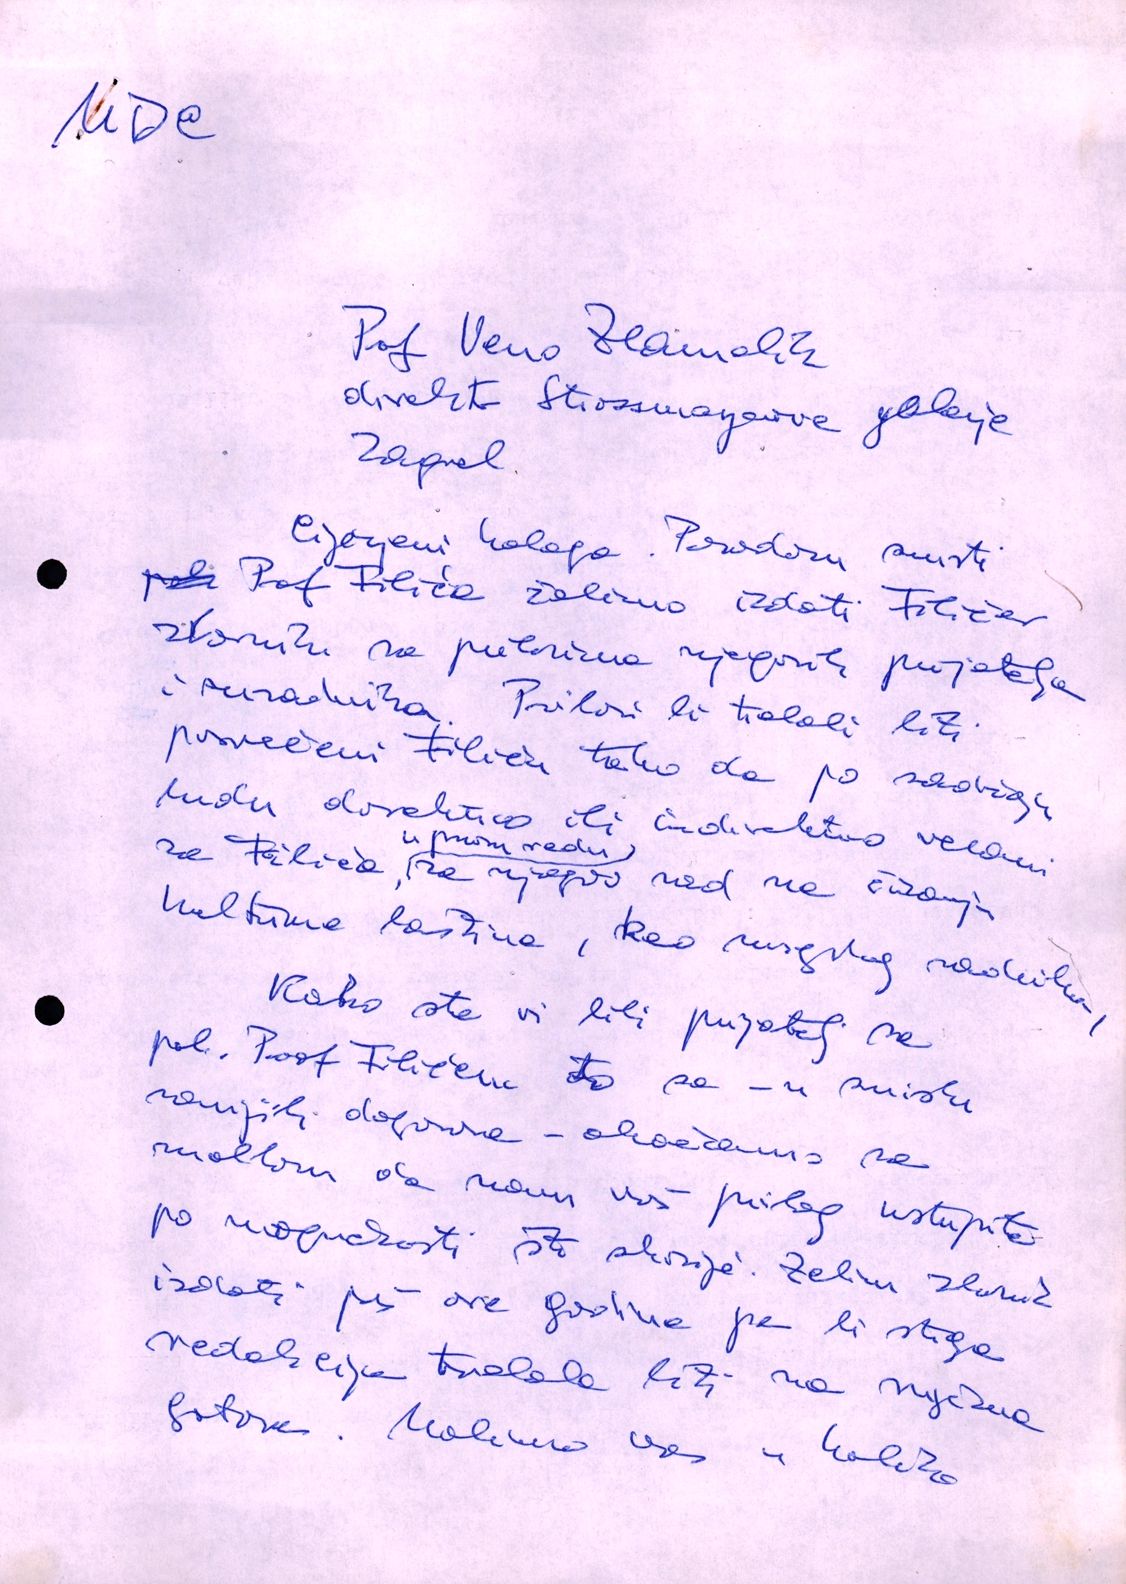 Prof Veno Zlamalik
direktor Strossmayerove galerije
Zagreb
Cijenjeni kolega. Povodom smrti
Prof Filića želimo izdati Filićev
zbornik sa prilozima njegovih prijatelja
i suradnika. Prilozi bi trebali biti
posvećeni Filiću tako da po sadržaju
budu direktno ili indirektno vezani
za Filića, u prvom redu za njegov rad na čuvanju
kulturne baštine, kao muzejskog radnika,
Kako ste vi bili prijatelj sa
pok. Prof Filićem to se – u smislu
ranijih dogovora – obraćamo sa
molbom da nam vaš prilog ustupite
po mogućnosti što skorije. Želim zbornik
izdati još ove godine pa bi stoga
redakcija trebala biti na vrijeme
gotova. Molimo vas u koliko